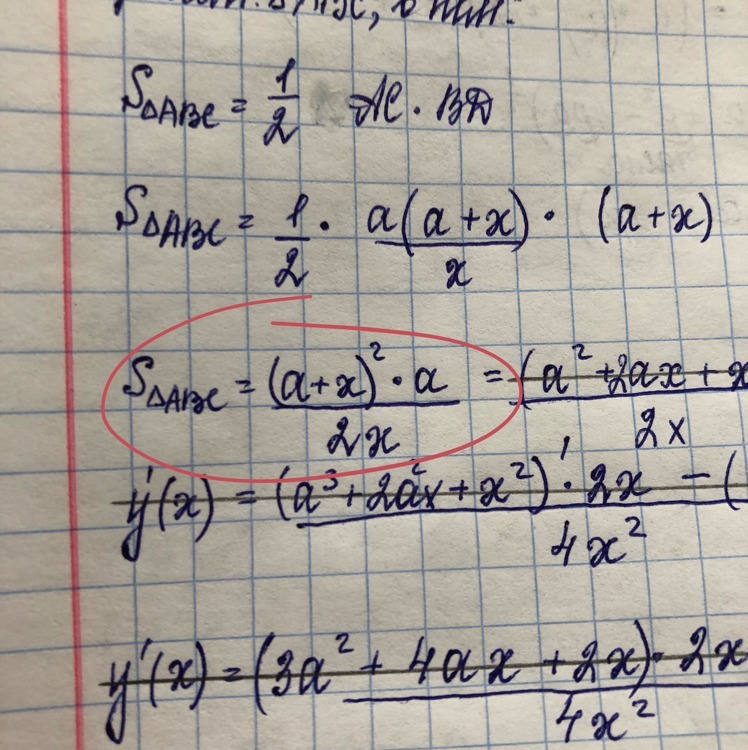 S△ABC = 1/2 AC · BD
S△ABC = 1/2 · a(a+x)/x · (a+x)
S△ABC = (a+x)²·a/2x = (a²+2ax+x/2x
y'(x) = (a³+2a²x+x²)'·2x − (/4x²
y'(x) = (3a²+4ax+2x)·2x/4x²